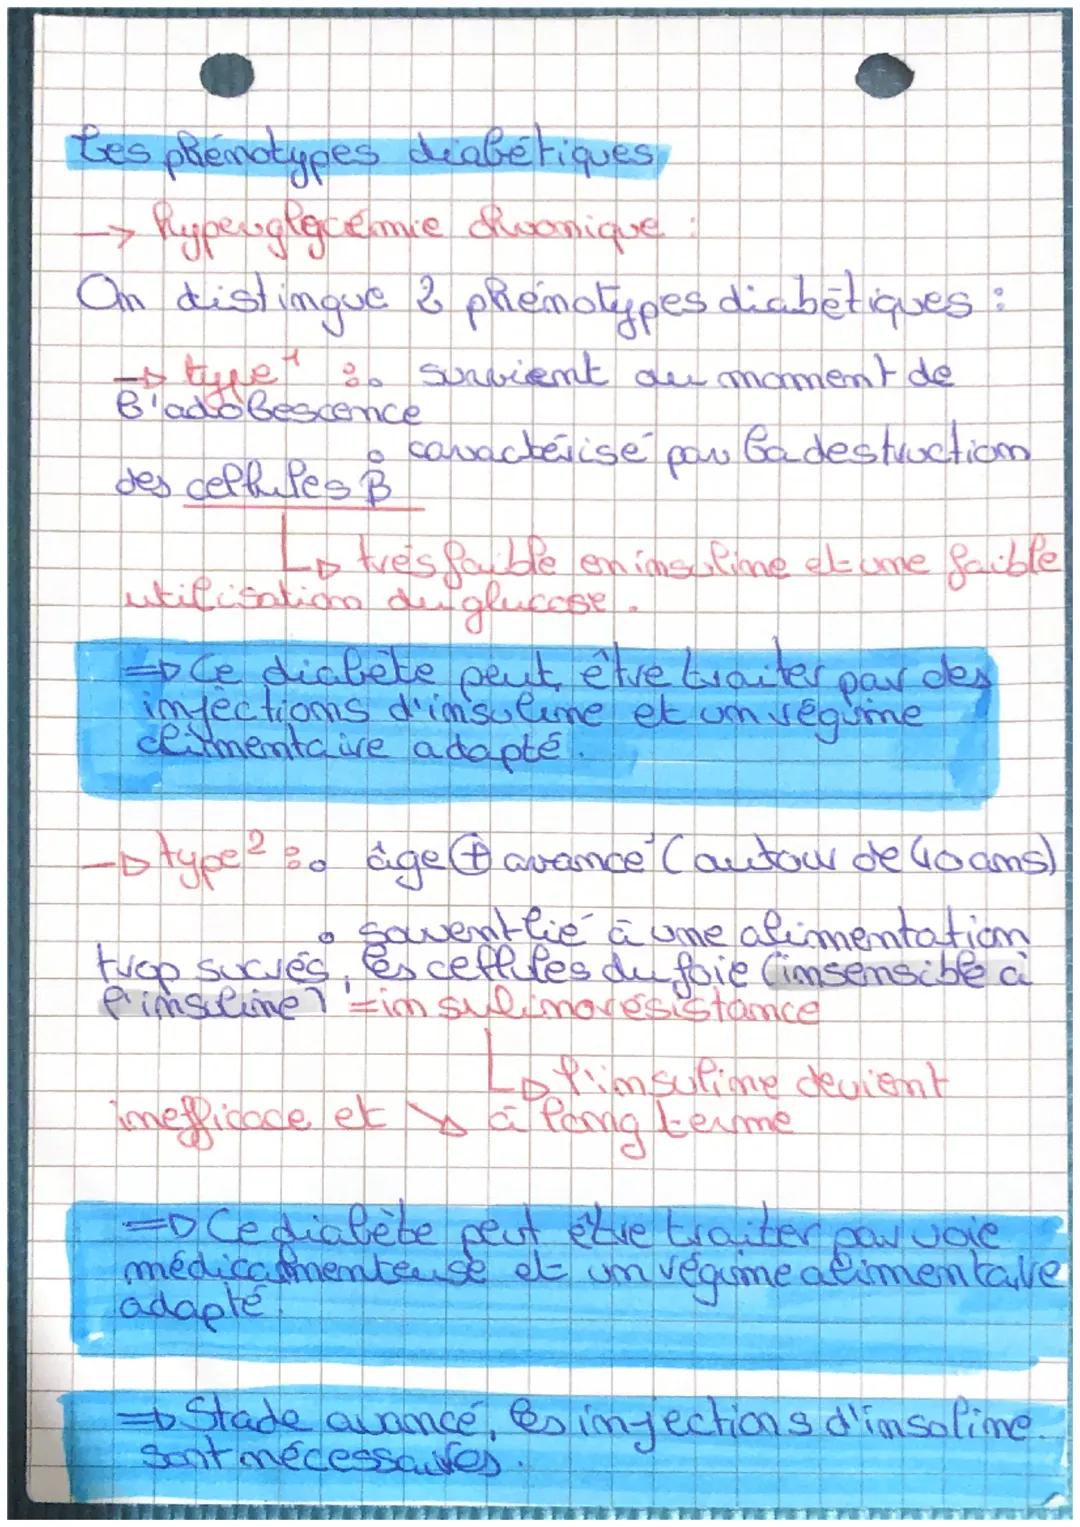 Les phénotypes diabétiques
→ hyperglycémie chronique :
On distingue 2 phénotypes diabétiques :
→ type 1 : • survient au moment de
l'adolescence
• caractérisé par la destruction
des cellules B
↳ très faible en insuline et une faible
utilisation du glucose.
⇒ Ce diabète peut être traiter par des
injections d'insuline et un régime
alimentaire adapté.
→ type 2 : • âge ⊕ avancé (autour de 40 ans)
• souvent lié à une alimentation
trop sucrés, les cellules du foie (insensible à
l'insuline) = insulinorésistance
↳ l'insuline devient
inefficace et ↘ à long terme
⇒ Ce diabète peut être traiter par voie
médicammenteuse et un régime alimentaire
adapté.
⇒ Stade avancé, les injections d'insuline
sont nécessaires.